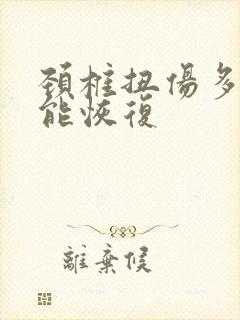 頚椎扭傷多
能恢復
離棄候